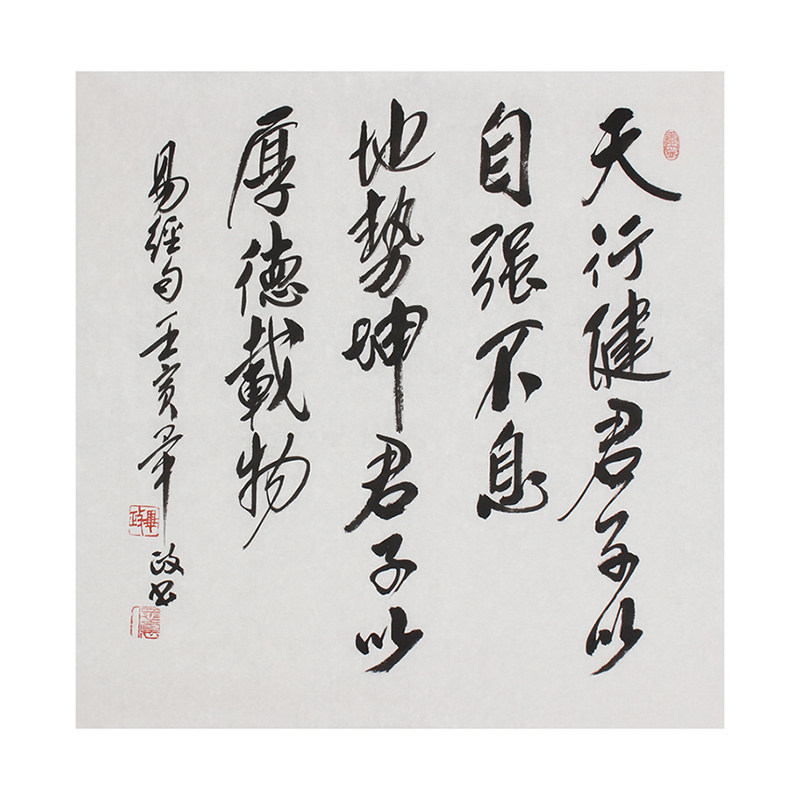 天行健君子以
自强不息
地势坤君子以
厚德載物
易經句壬寅畢政书